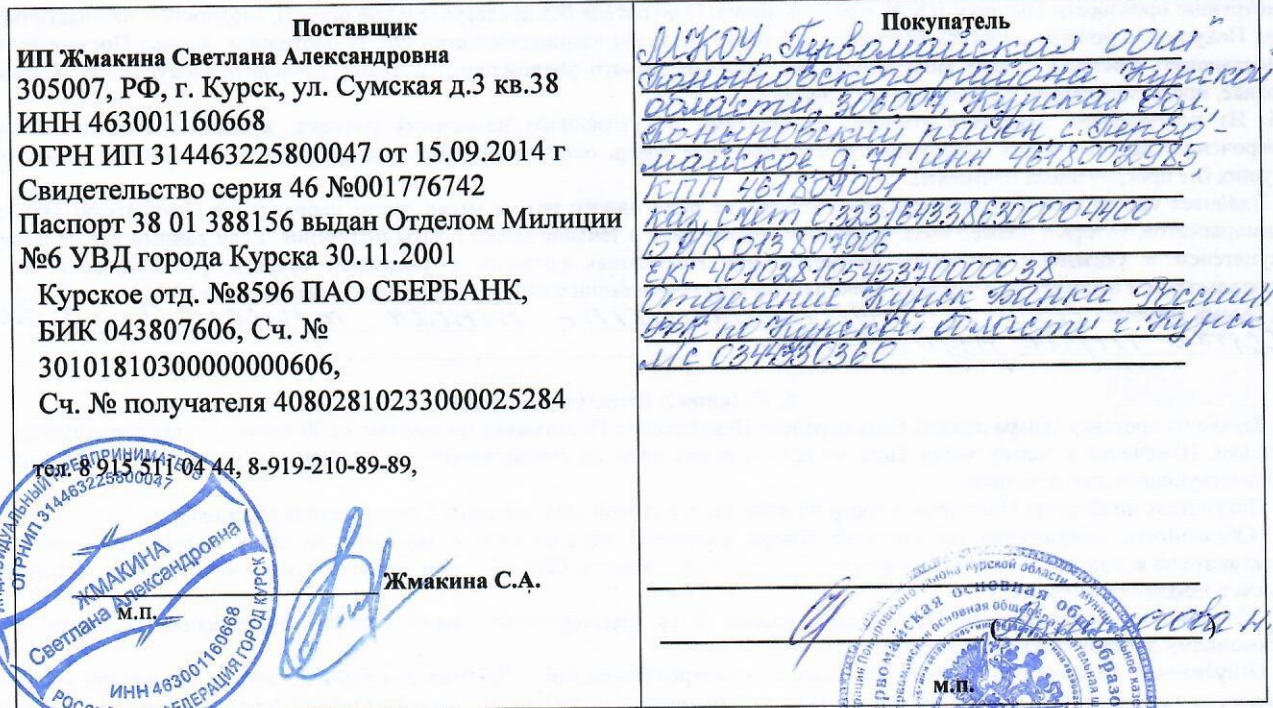 Поставщик
ИП Жмакина Светлана Александровна
305007, РФ, г. Курск, ул. Сумская д.3 кв.38
ИНН 463001160668
ОГРН ИП 314463225800047 от 15.09.2014 г
Свидетельство серия 46 №001776742
Паспорт 38 01 388156 выдан Отделом Милиции
№6 УВД города Курска 30.11.2001
Курское отд. №8596 ПАО СБЕРБАНК,
БИК 043807606, Сч. №
30101810300000000606,
Сч. № получателя 40802810233000025284
тел. 8 915 511 04 44, 8-919-210-89-89,
Жмакина С.А.
м.п.
ИНДИВИДУАЛЬНЫЙ ПРЕДПРИНИМАТЕЛЬ
ОГРНИП 314463225800047
ЖМАКИНА
Светлана Александровна
ИНН 463001160668
РОССИЙСКАЯ ФЕДЕРАЦИЯ ГОРОД КУРСК
Покупатель
МКОУ Первомайская ООШ
Поныровского района Курской
области, 306004 Курская обл.
Поныровский район с. Перво-
майское д. 71 ИНН 4618002985
КПП 461801001
каз. счет 03231643386300004400
БИК 013807906
ЕКС 40102810545370000038
Отделение Курск Банка России//
УФК по Курской области г. Курск
л/с 034
м.п.
района Курской области
основная